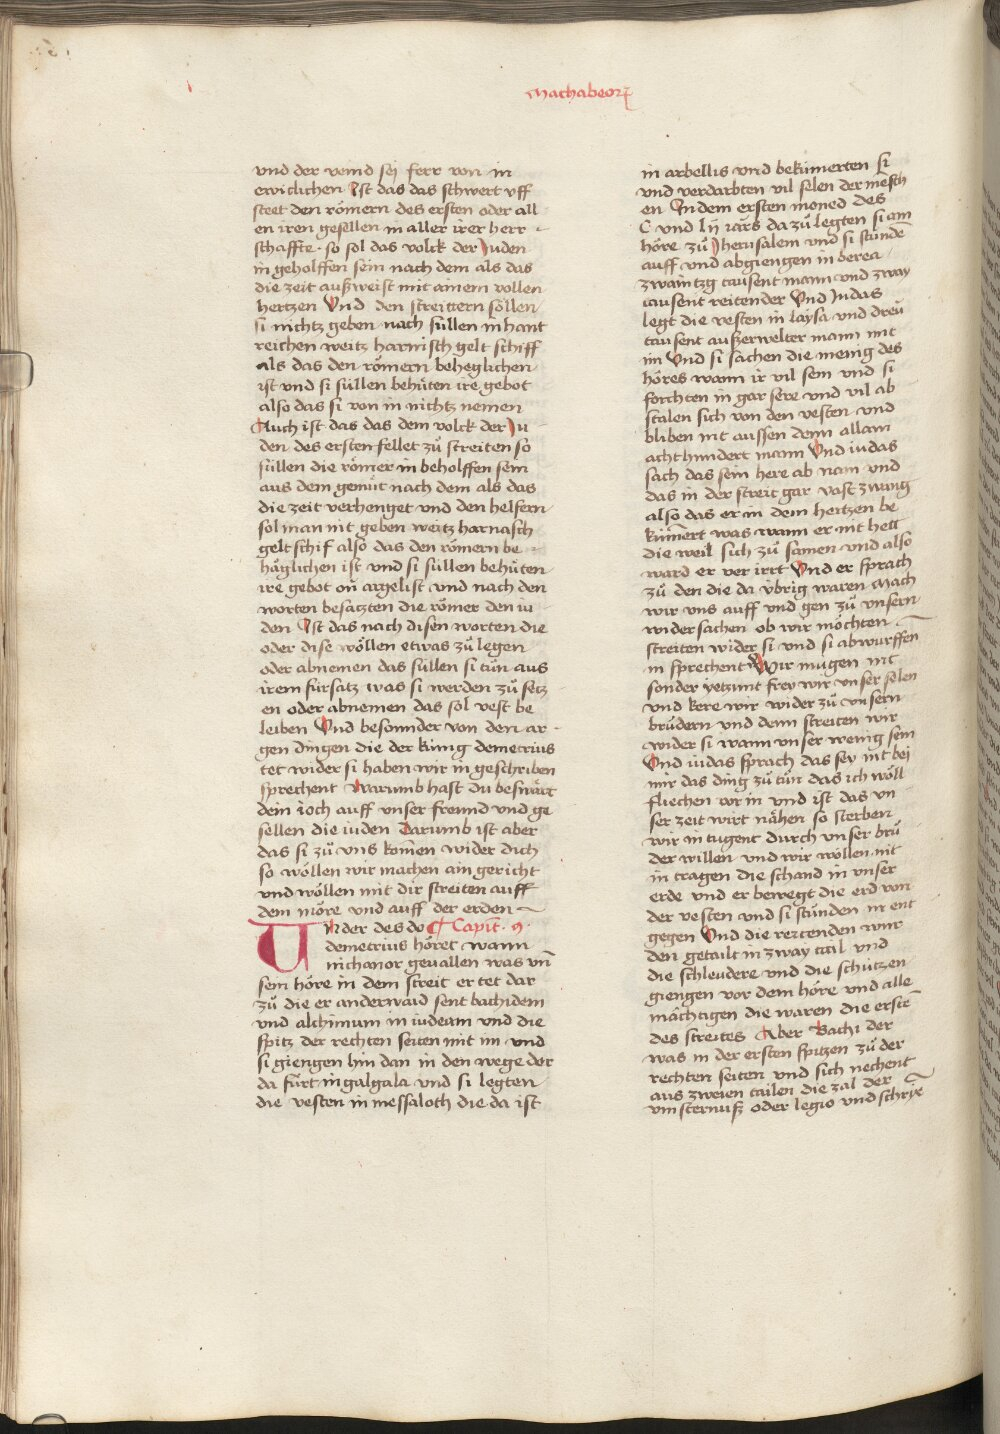 Machabeorum
vnd der veind sej ferr von in
ewiclichen Ist das das schwert vff
steet den römern des ersten oder all
en iren gesellen in aller irer herr
schaffte · so sol das volck der Juden
in geholffen sein nach dem als das
die zeit außweist mit ainem vollen
hertzen Vnd den streittern söllen
si nichtz geben nach süllen in hant
reichen weitz harnisch gelt schiff
als das den römern beheglichen
ist vnd si süllen behüten ire gebot
also das si von in nichtz nemen
Auch ist das das dem volck der Ju
den des ersten fellet zů streiten so
süllen die römer in beholffen sein
aus dem gemüt nach dem als das
die zeit verhenget vnd den helfern
sol man nit geben weitz harnasch
gelt schif also das den römern be
häglichen ist vnd si süllen behüten
ire gebot on argelist vnd nach den
worten besatzten die römer den iu
den Ist das nach disen worten die
oder dise wöllen etwas zů legen
oder abnemen das süllen si tůn aus
irem fürsatz was si werden zů setz
en oder abnemen das sol vest be
leiben Vnd besonnder von den ar
gen dingen die der künig demetrius
tet wider si haben wir im geschriben
sprechent Warumb hast du beswärt
dein ioch auff vnser freund vnd ge
sellen die iuden Darumb ist aber
das si zů vns komen wider dich
so wöllen wir machen ain gericht
vnd wöllen mit dir streiten auff
dem möre vnd auff der erden
Vnder des do Capit. 9.
demetrius höret wann
nichanor geuallen was vn̄
sein höre in dem streit er tet dar
zů die er anderwaid sent bachidem
vnd alchimum in iudeam vnd die
spitz der rechten seiten mit im vnd
si giengen hin dan in den wege der
da fürt in galgala vnd si legten
die vesten in messaloth die da ist
in arbellis vnd bekümerten si
vnd verdarbten vil selen der mēsch
en In dem ersten moned des
C vnd lij iars da zů legten si am
höre zů Jherusalem vnd si stůnden
auff vnd abgiengen in berea
zwaintzg tausent mann vnd zway
tausent reitender Vnd Judas
legt die vesten in laysa vnd dreü
tausent außerwelter mann mit
im Vnd si sachen die menig des
höres wann ir vil sein vnd si
forchten in gar sere vnd vil ab
stalen sich von den vesten vnd
bliben nit aussen denn allain
acht hundert mann Vnd iudas
sach das sein here ab nam vnd
das in der streit gar vast zwang
also das er in dem hertzen be
kümert was wann er nit hett
die weil sich zů samen vnd also
ward er ver irrt Vnd er sprach
zů den die da übrig waren Mach
wir vns auff vnd gen zů vnsern
widersachen ob wir möchten
streiten wider si vnd si abwurffen
in sprechent Wir mugen nit
sonder yetzunt frey wir vnser selen
vnd kere wir wider zů vnsern
brüdern vnd denn streiten wir
wider si wann vnser wenig sein
Vnd iudas sprach das sey nit bei
mir das ding zů tůn das ich wöll
fliechen vor in vnd ist das vn
ser zeit wirt nähen so sterben
wir in tugent durch vnser brü
der willen vnd wir wöllen nit
in tragen die schand in vnser
erde vnd er bewegt die erd von
der vesten vnd si stůnden in ent
gegen Vnd die reitenden wur
den getailt in zway tail vnd
die schleudere vnd die schützen
giengen vor dem höre vnd alle
mächtigen die waren die erstē
des streites Aber Bachi der
was in der ersten spitzen zů der
rechten seiten vnd sich nechent
aus zweien tailen die zal der
vinsternuß oder legio vnd schrye